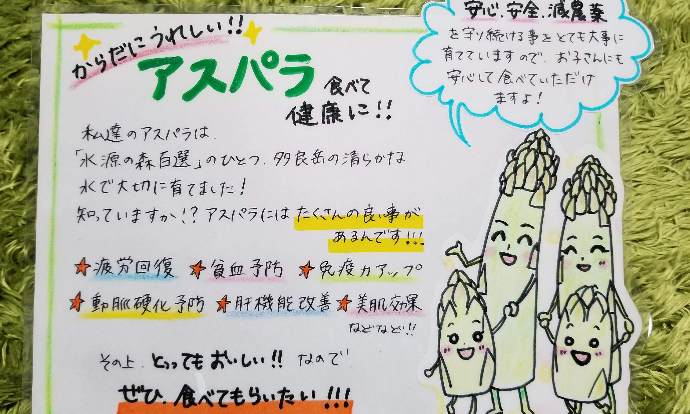 からだにうれしい!!
アスパラ 食べて
健康に!!
安心、安全、減農薬
を守り続ける事をとても大事に
育てていますので、お子さんにも
安心して食べていただけ
ますよ!
私達のアスパラは、
「水源の森百選」のひとつ、多良岳の清らかな
水で大切に育てました!
知っていますか!?アスパラにはたくさんの良い事が
あるんです!!!
★疲労回復 ★貧血予防 ★免疫力アップ
★動脈硬化予防 ★肝機能改善 ★美肌効果
などなど!!
その上、とってもおいしい!!なので
ぜひ、食べてもらいたい!!!